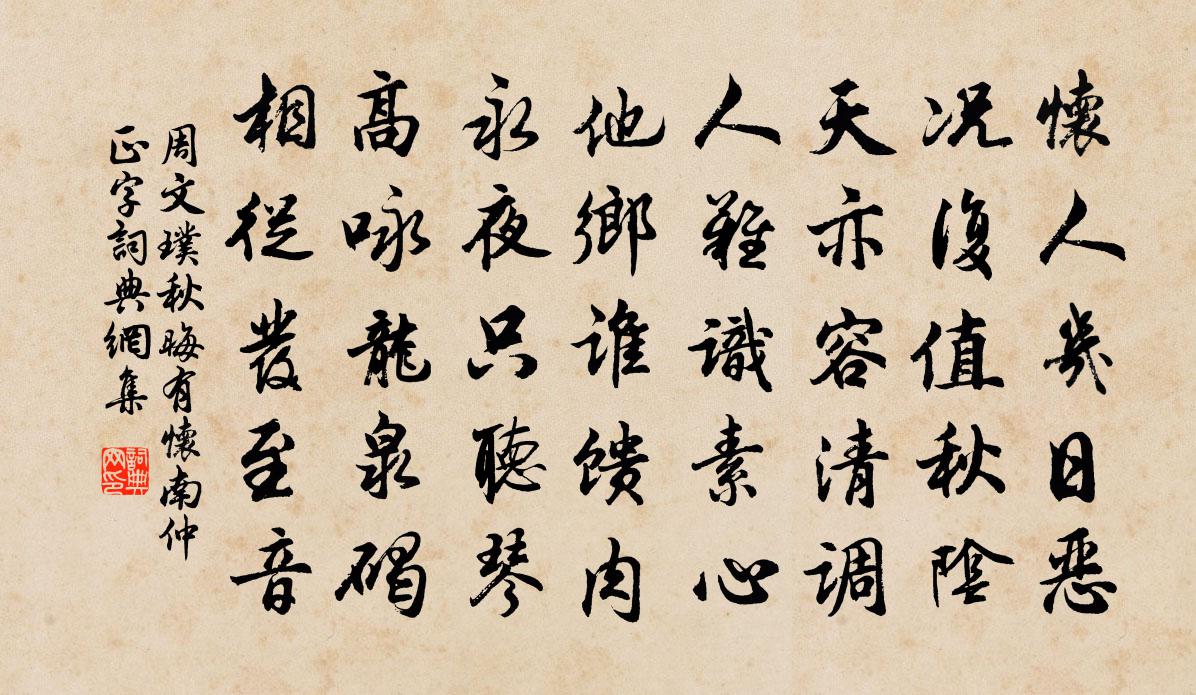 懷人幾日惡
况復值秋陰
天亦容清调
人難識素心
他鄉谁馈肉
永夜只聽琴
高咏龍泉碣
相從發至音
周文璞秋晦有懷南仲
正字詞典網集
詞典网印